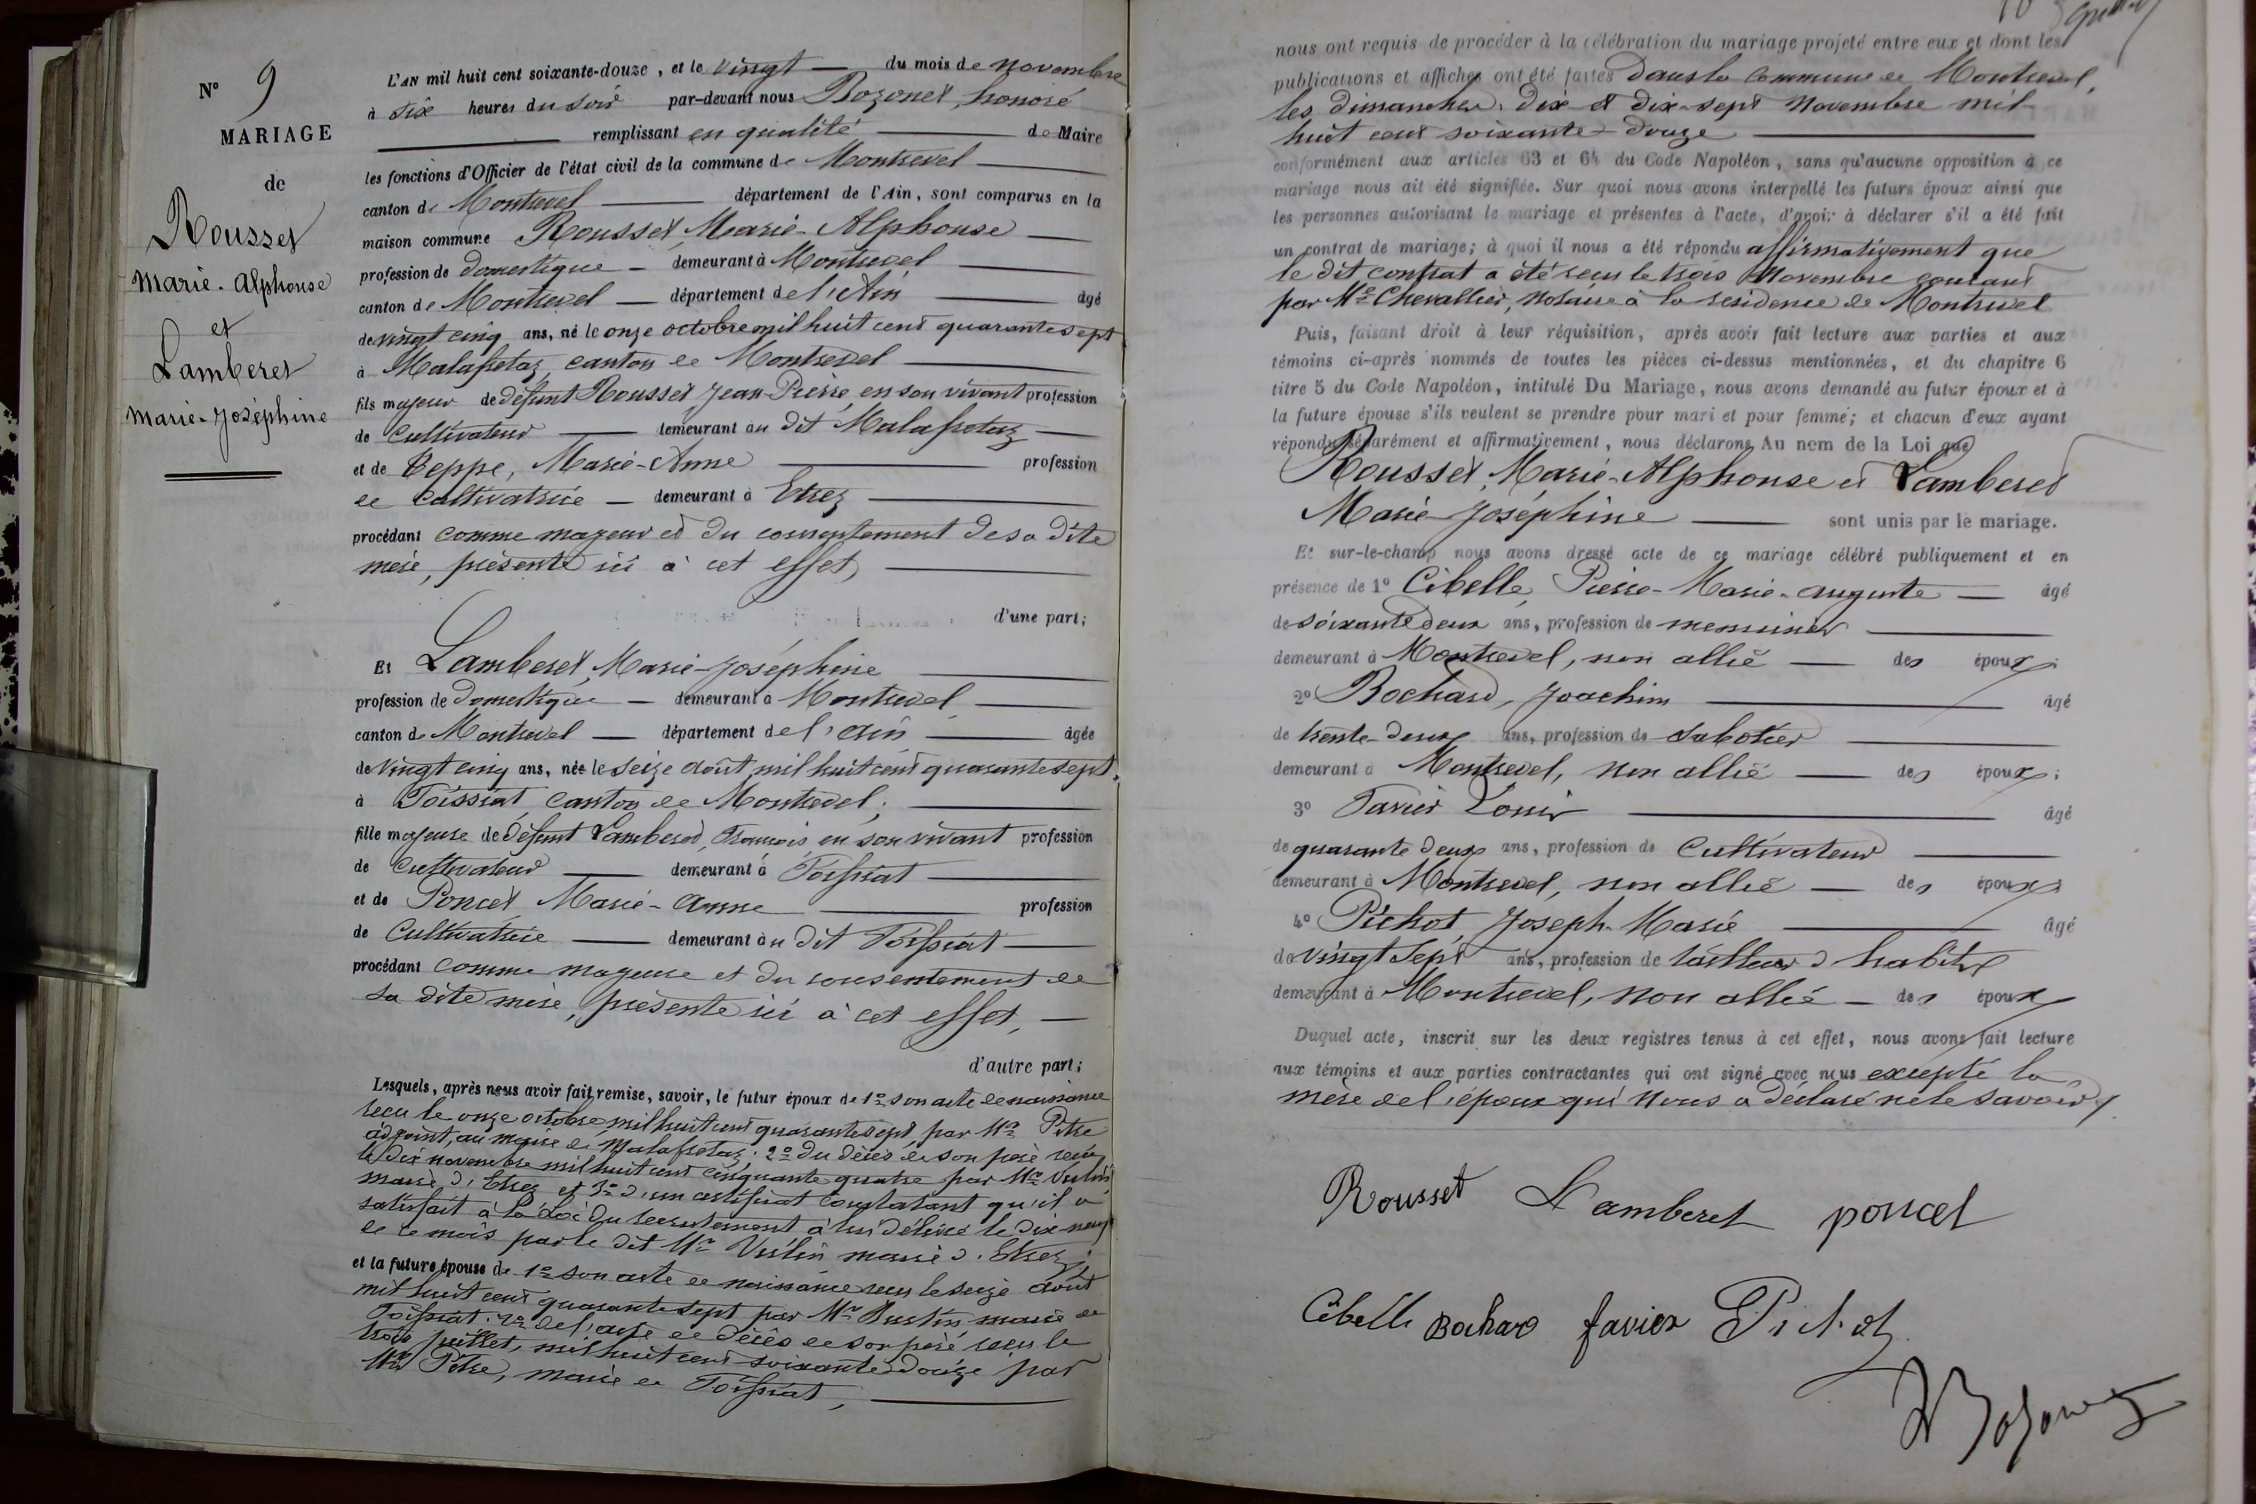 N° 9
MARIAGE
de
Rousset
Marie-Alphonse
et
Lamberet
Marie-Joséphine
L'AN mil huit cent soixante-douze, et le vingt du mois de novembre
à six heures du soir par-devant nous Bozonet, honoré
remplissant en qualité de Maire
les fonctions d'Officier de l'état civil de la commune de Montrevel
canton de Montrevel département de l'Ain, sont comparus en la
maison commune Rousset, Marie-Alphonse
profession de domestique demeurant à Montrevel
canton de Montrevel département de l'Ain âgé
de vingt cinq ans, né le onze octobre mil huit cent quarante sept
à Malafretaz, canton de Montrevel
fils majeur de défunt Rousset Jean-Pierre, en son vivant profession
de cultivateur demeurant au dit Malafretaz
et de Teppe, Marie-Anne profession
de cultivatrice demeurant à Etrez
procédant comme majeur et du consentement de sa dite
mère, présente ici à cet effet,
d'une part;
Et Lamberet, Marie-Joséphine
profession de domestique demeurant à Montrevel
canton de Montrevel département de l'ain âgée
de vingt cinq ans, née le seize août mil huit cent quarante sept,
à Foissiat, canton de Montrevel,
fille majeure de défunt Lamberet, François, en son vivant profession
de cultivateur demeurant à Foissiat
et de Poncet, Marie-Anne profession
de cultivatrice demeurant au dit Foissiat
procédant comme majeure et du consentement de
sa dite mère, présente ici à cet effet,
d'autre part;
Lesquels, après nous avoir fait remise, savoir, le futur époux de 1° son acte de naissance
reçu le onze octobre mil huit cent quarante sept par Mr Pitre
adjoint, au maire de Malafretaz. 2° du décès de son père reçu
le dix novembre mil huit cent cinquante quatre par Mr Vulin
maire d'Etrez et 3° d'un certificat constatant qu'il a
satisfait à la Loi du recrutement à lui délivré le dix neuf
de ce mois par le dit Mr Vulin maire d'Etrez;
et la future épouse de 1° son acte de naissance reçu le seize août
mil huit cent quarante sept par Mr maire de
Foissiat. 2° de l'acte de décès de son père reçu le
trois juillet, mil huit cent soixante douze par
Mr Pitre, maire de Foissiat,
nous ont requis de procéder à la célébration du mariage projeté entre eux et dont les
publications et affiches ont été faites dans la commune de Montrevel,
les dimanches dix et dix-sept novembre mil
huit cent soixante-douze
conformément aux articles 63 et 64 du Code Napoléon, sans qu'aucune opposition à ce
mariage nous ait été signifiée. Sur quoi nous avons interpellé les futurs époux ainsi que
les personnes autorisant le mariage et présentes à l'acte, d'avoir à déclarer s'il a été fait
un contrat de mariage; à quoi il nous a été répondu affirmativement que
le dit contrat a été reçu le trois Novembre courant
par Me Chevallier, notaire à la residence de Montrevel
Puis, faisant droit à leur réquisition, après avoir fait lecture aux parties et aux
témoins ci-après nommés de toutes les pièces ci-dessus mentionnées, et du chapitre 6
titre 5 du Code Napoléon, intitulé Du Mariage, nous avons demandé au futur époux et à
la future épouse s'ils veulent se prendre pour mari et pour femme; et chacun d'eux ayant
répondu séparément et affirmativement, nous déclarons Au nom de la Loi que
Rousset, Marie-Alphonse et Lamberet
Marie-Joséphine sont unis par le mariage.
Et sur-le-champ nous avons dressé acte de ce mariage célébré publiquement et en
présence de 1° Cibelle, Pierre-Marie-auguste âgé
de soixante deux ans, profession de menuisier
demeurant à Montrevel, non allié des époux;
2° Bochard, Joachim âgé
de trente-deux ans, profession de sabotier
demeurant à Montrevel, non allié des époux;
3° Favier Louis âgé
de quarante deux ans, profession de cultivateur
demeurant à Montrevel, non allié des époux;
4° Pichot, Joseph-Marie âgé
de vingt sept ans, profession de tailleur d'habits
demeurant à Montrevel, non allié des époux
Duquel acte, inscrit sur les deux registres tenus à cet effet, nous avons fait lecture
aux témoins et aux parties contractantes qui ont signé avec nous excepté la
mère de l'époux qui nous a déclaré ne le savoir.
Rousset Lamberet poncet
Cibelle Bochard favier Pichot
Bozonet